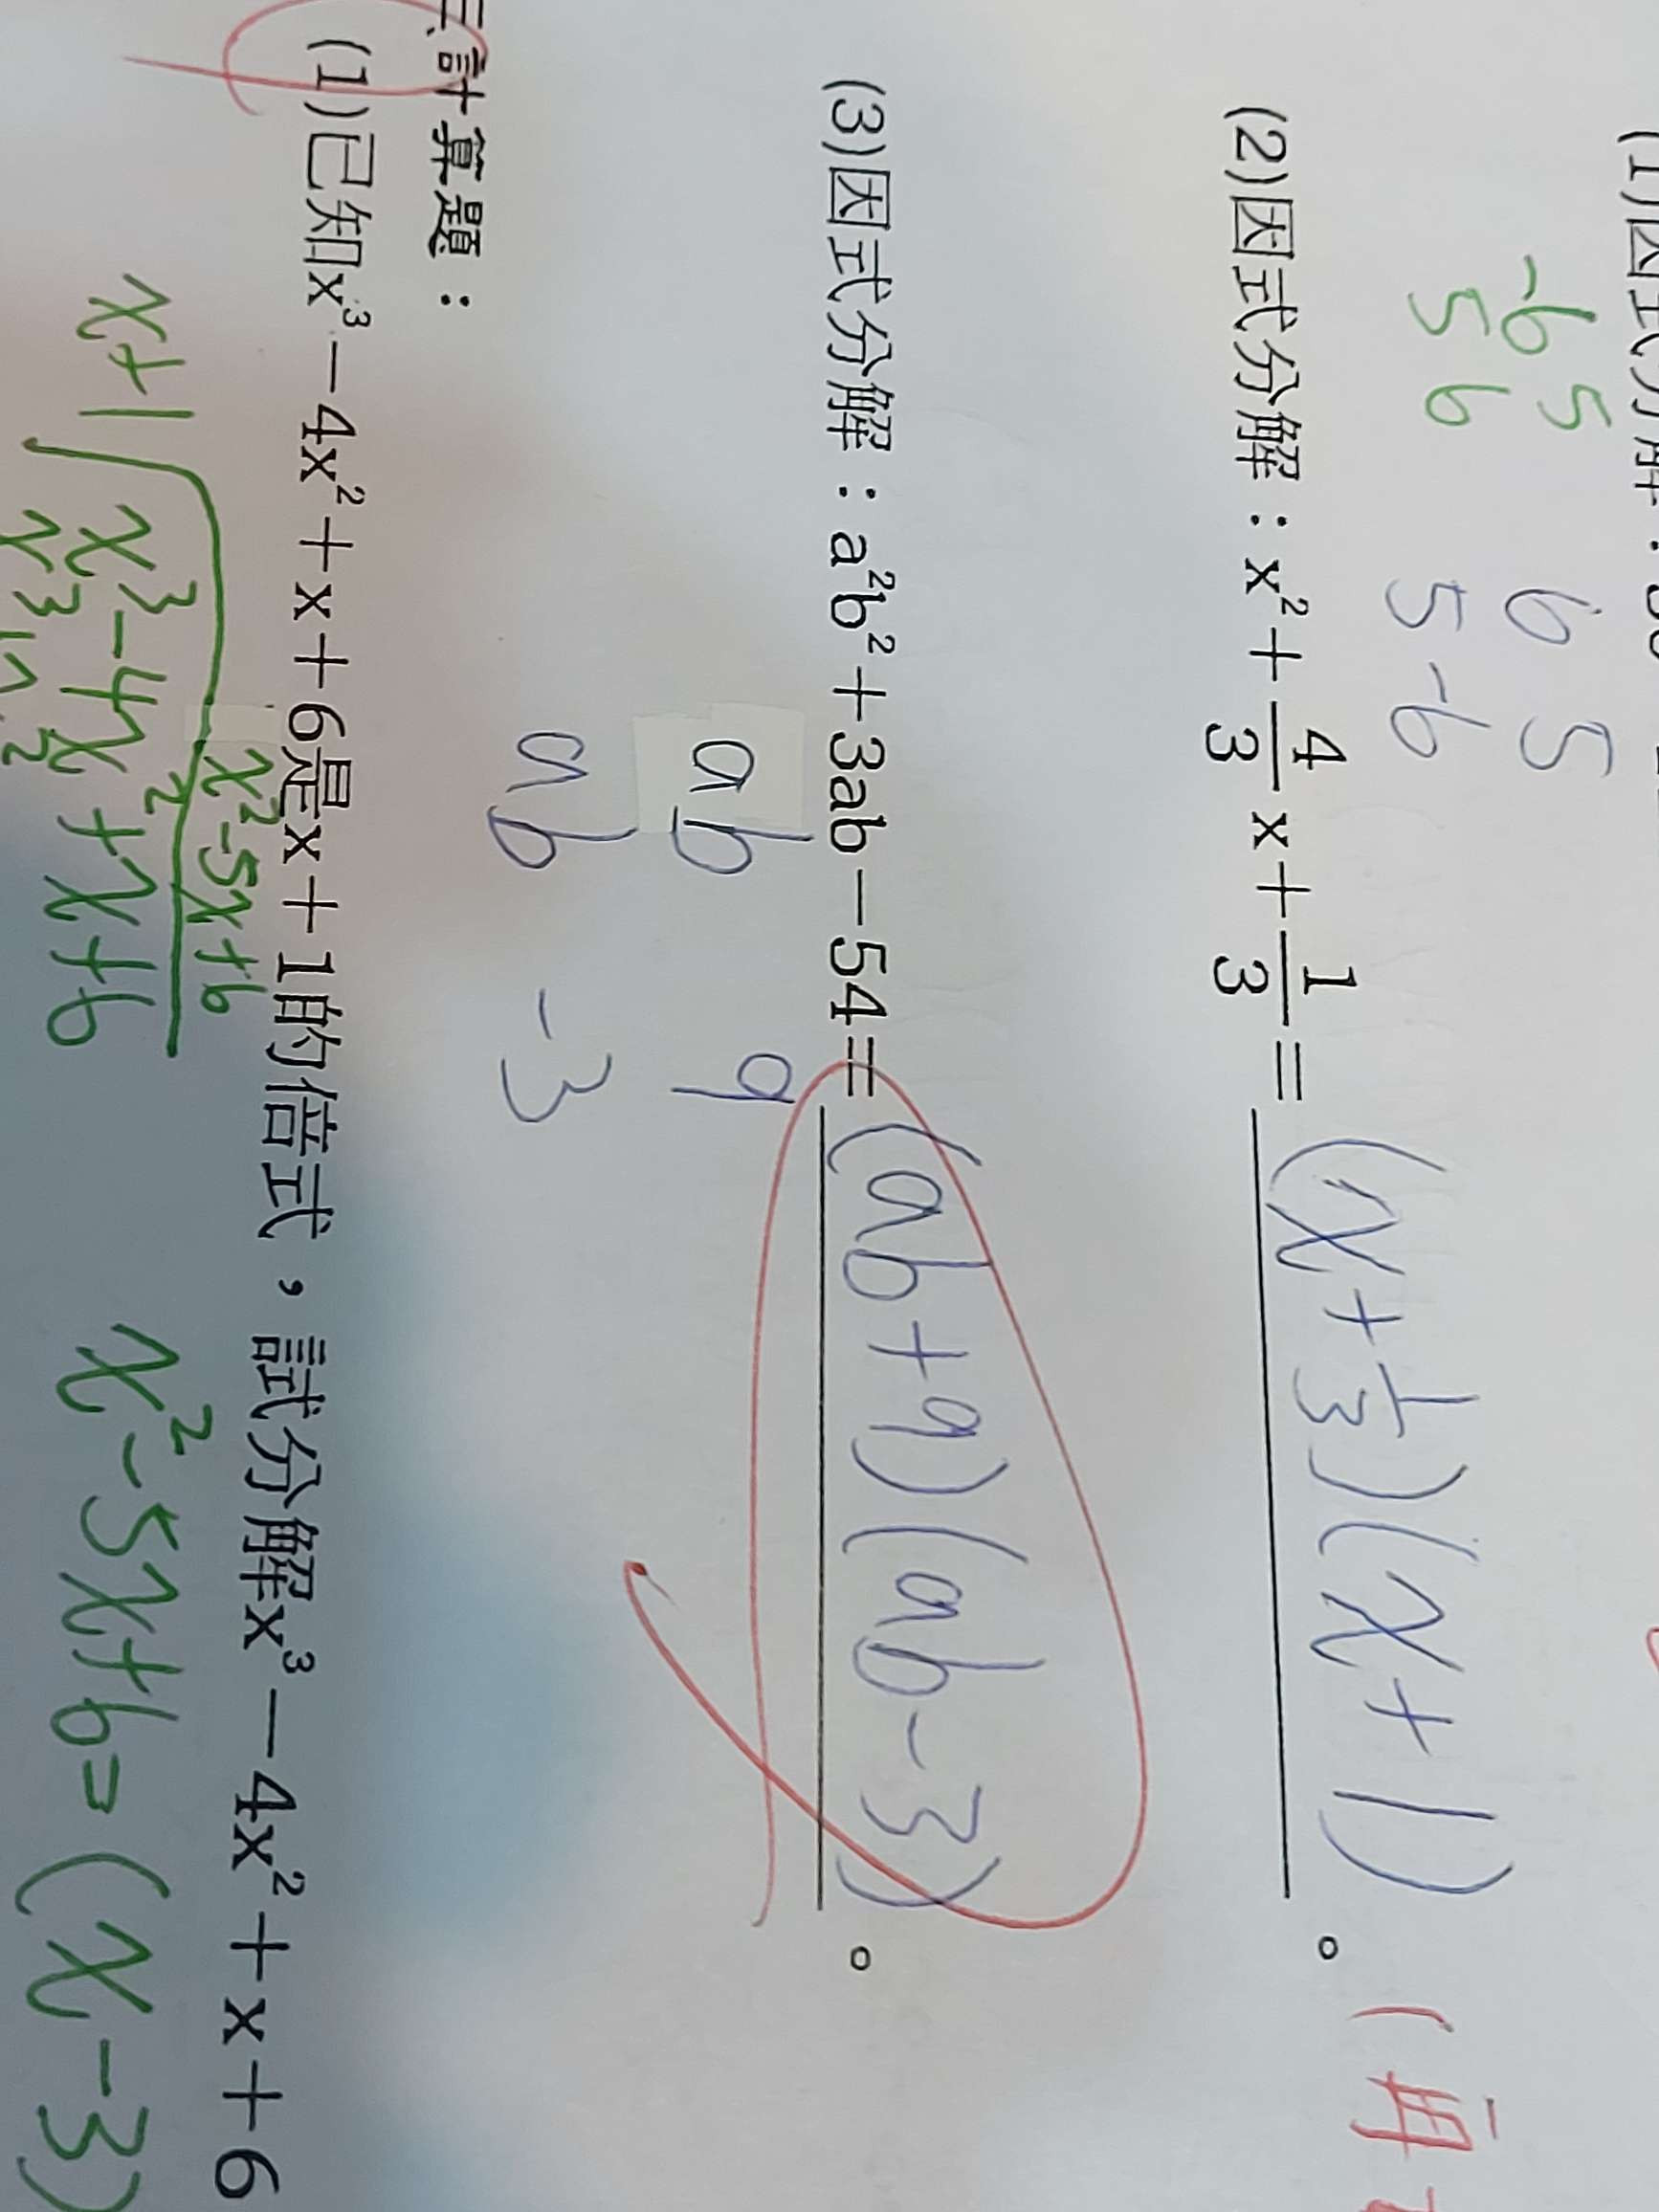 -6 5 6 5
5 6 5 -6
(2)因式分解：x²+4/3x+1/3=(x+1/3)(x+1)。
(3)因式分解：a²b²+3ab-54=(ab+9)(ab-3)。
ab 9
ab -3
三、計算題：
(1)已知x³-4x²+x+6是x+1的倍式，試分解x³-4x²+x+6
x²-5x+6
x+1 x³-4x²+x+6
x²-5x+6=(x-3)
x³